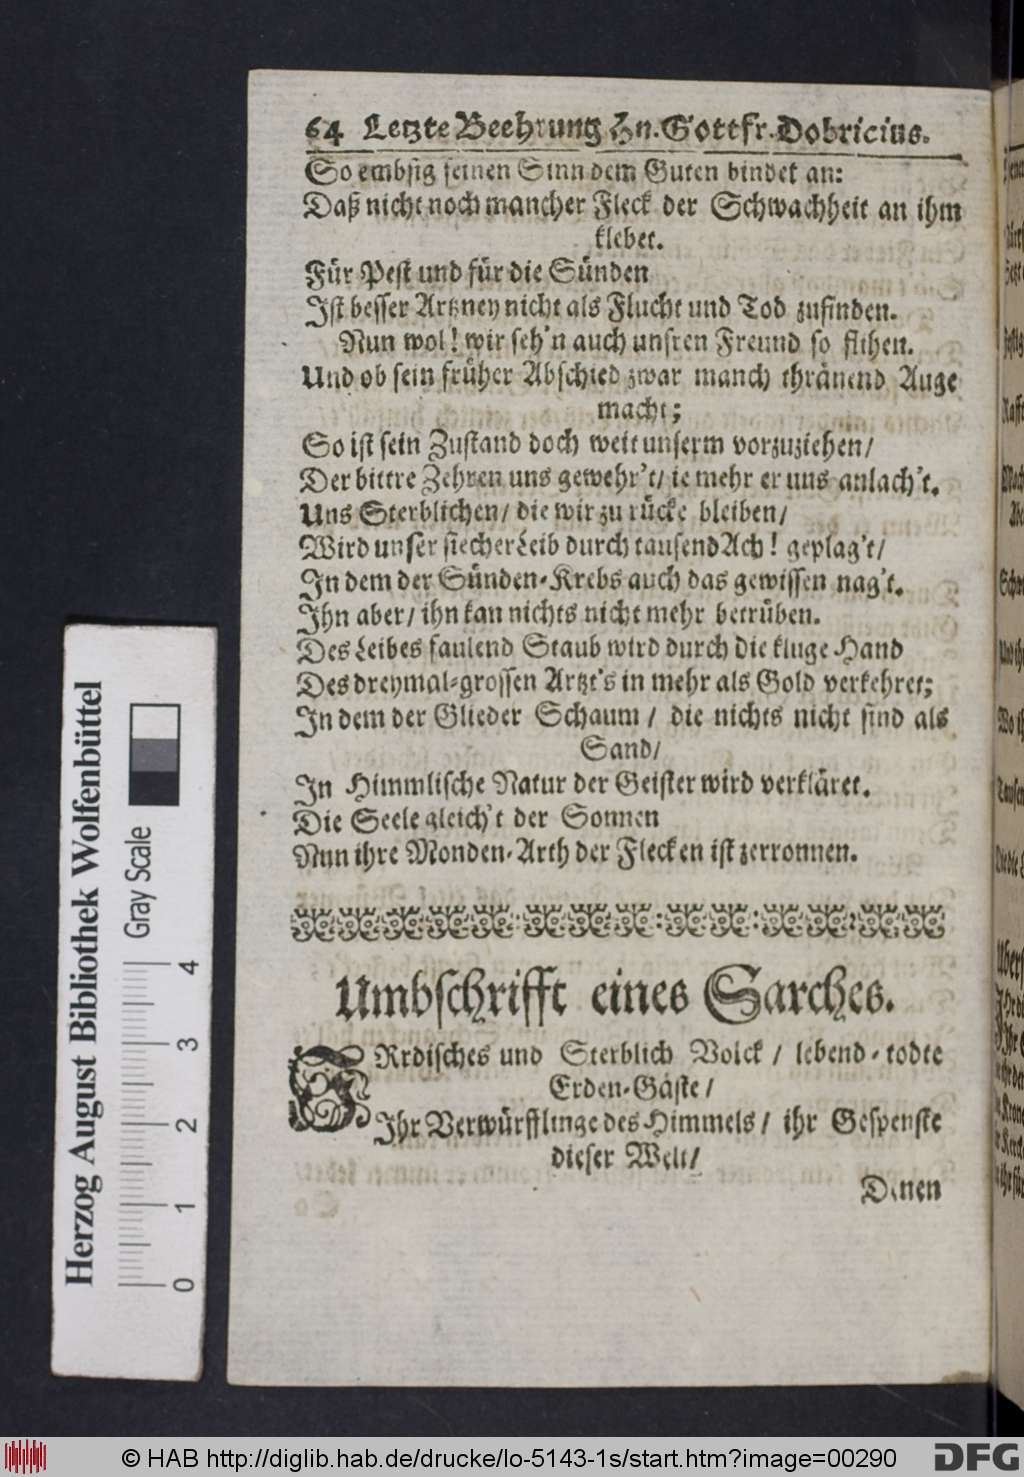 64 Letzte Beehrung Hn. Gottfr. Dobricius.
So embsig seinen Sinn dem Guten bindet an:
Daß nicht noch mancher Fleck der Schwachheit an ihm
klebet.
Für Pest und für die Sünden
Ist besser Artzney nicht als Flucht und Tod zufinden.
Nun wol! wir seh'n auch unsren Freund so flihen.
Und ob sein früher Abschied zwar manch thränend Auge
macht;
So ist sein Zustand doch weit unserm vorzuziehen/
Der bittre Zehren uns gewehr't/ ie mehr er uns anlach't.
Uns Sterblichen/ die wir zu rücke bleiben/
Wird unser siecher Leib durch tausend Ach! geplag't/
In dem der Sünden-Krebs auch das gewissen nag't.
Ihn aber/ ihn kan nichts nicht mehr betrüben.
Des Leibes faulend Staub wird durch die kluge Hand
Des dreymal-grossen Artzt's in mehr als Gold verkehret;
In dem der Glieder Schaum / die nichts nicht sind als
Sand/
In Himmlische Natur der Geister wird verkläret.
Die Seele gleich't der Sonnen
Nun ihre Monden-Arth der Flecken ist zerronnen.
Umbschrifft eines Sarches.
IRrdisches und Sterblich Volck / lebend-todte
Erden-Gäste/
Ihr Verwürfflinge des Himmels/ ihr Gespenste
dieser Welt/
Denen
Herzog August Bibliothek Wolfenbüttel
Gray Scale
0 1 2 3 4
© HAB http://diglib.hab.de/drucke/lo-5143-1s/start.htm?image=00290
DFG